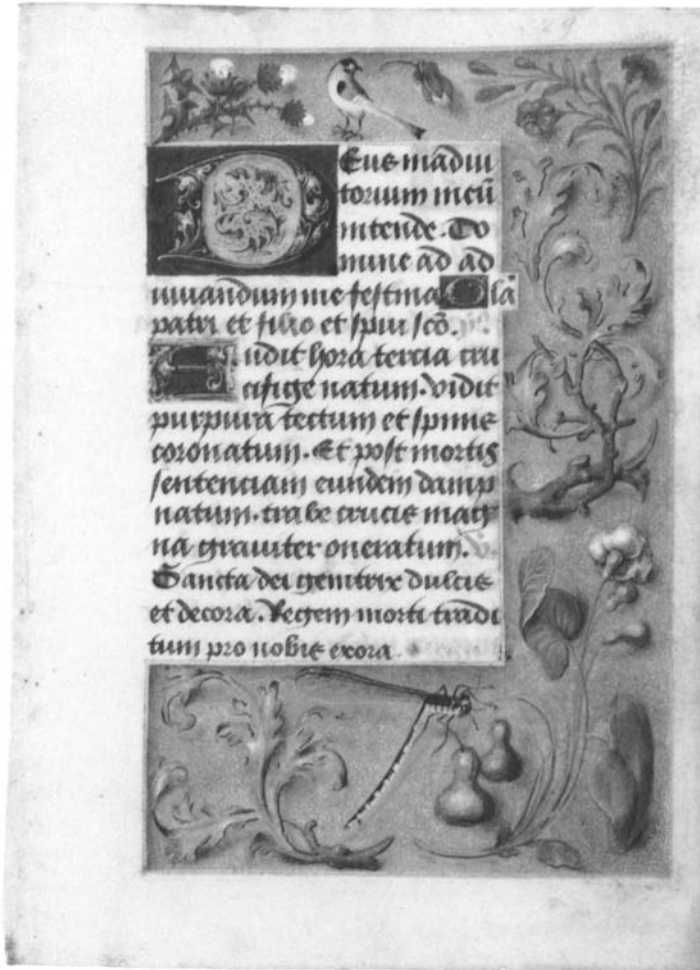 329
Deus in adiu
torium meū
intende. Do
mine ad ad
iuuandum me festina Glā
patri et filio et spiui scō.
Audit hora tercia cru
cifige natum. vidit
purpura tectum et spinis
coronatum. Et post mortis
sentenciam eundem damp
natum. trabe crucis mag
na grauiter oneratum. V.
Sancta dei genitrix dulcis
et decora. Regem morti tradi
tum pro nobis exora.